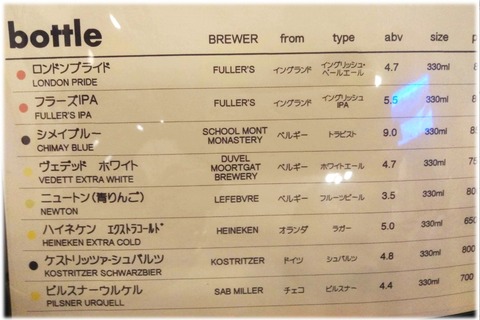 bottle BREWER from type abv size
ロンドンプライド FULLER'S イングランド イングリッシュ・ペールエール 4.7 330ml
LONDON PRIDE
フラーズIPA FULLER'S イングランド イングリッシュ IPA 5.5 330ml
FULLER'S IPA
シメイブルー SCHOOL MONT MONASTERY ベルギー トラピスト 9.0 330ml
CHIMAY BLUE
ヴェデッド ホワイト DUVEL MOORTGAT BREWERY ベルギー ホワイトエール 4.7 330ml
VEDETT EXTRA WHITE
ニュートン(青りんご) LEFEBVRE ベルギー フルーツビール 3.5 330ml
NEWTON
ハイネケン エクストラコールド HEINEKEN オランダ ラガー 5.0 330ml 650
HEINEKEN EXTRA COLD
ケストリッツァ・シュバルツ KOSTRITZER ドイツ シュバルツ 4.8 330ml
KOSTRITZER SCHWARZBIER
ピルスナーウルケル SAB MILLER チェコ ピルスナー 4.4 330ml 700
PILSNER URQUELL